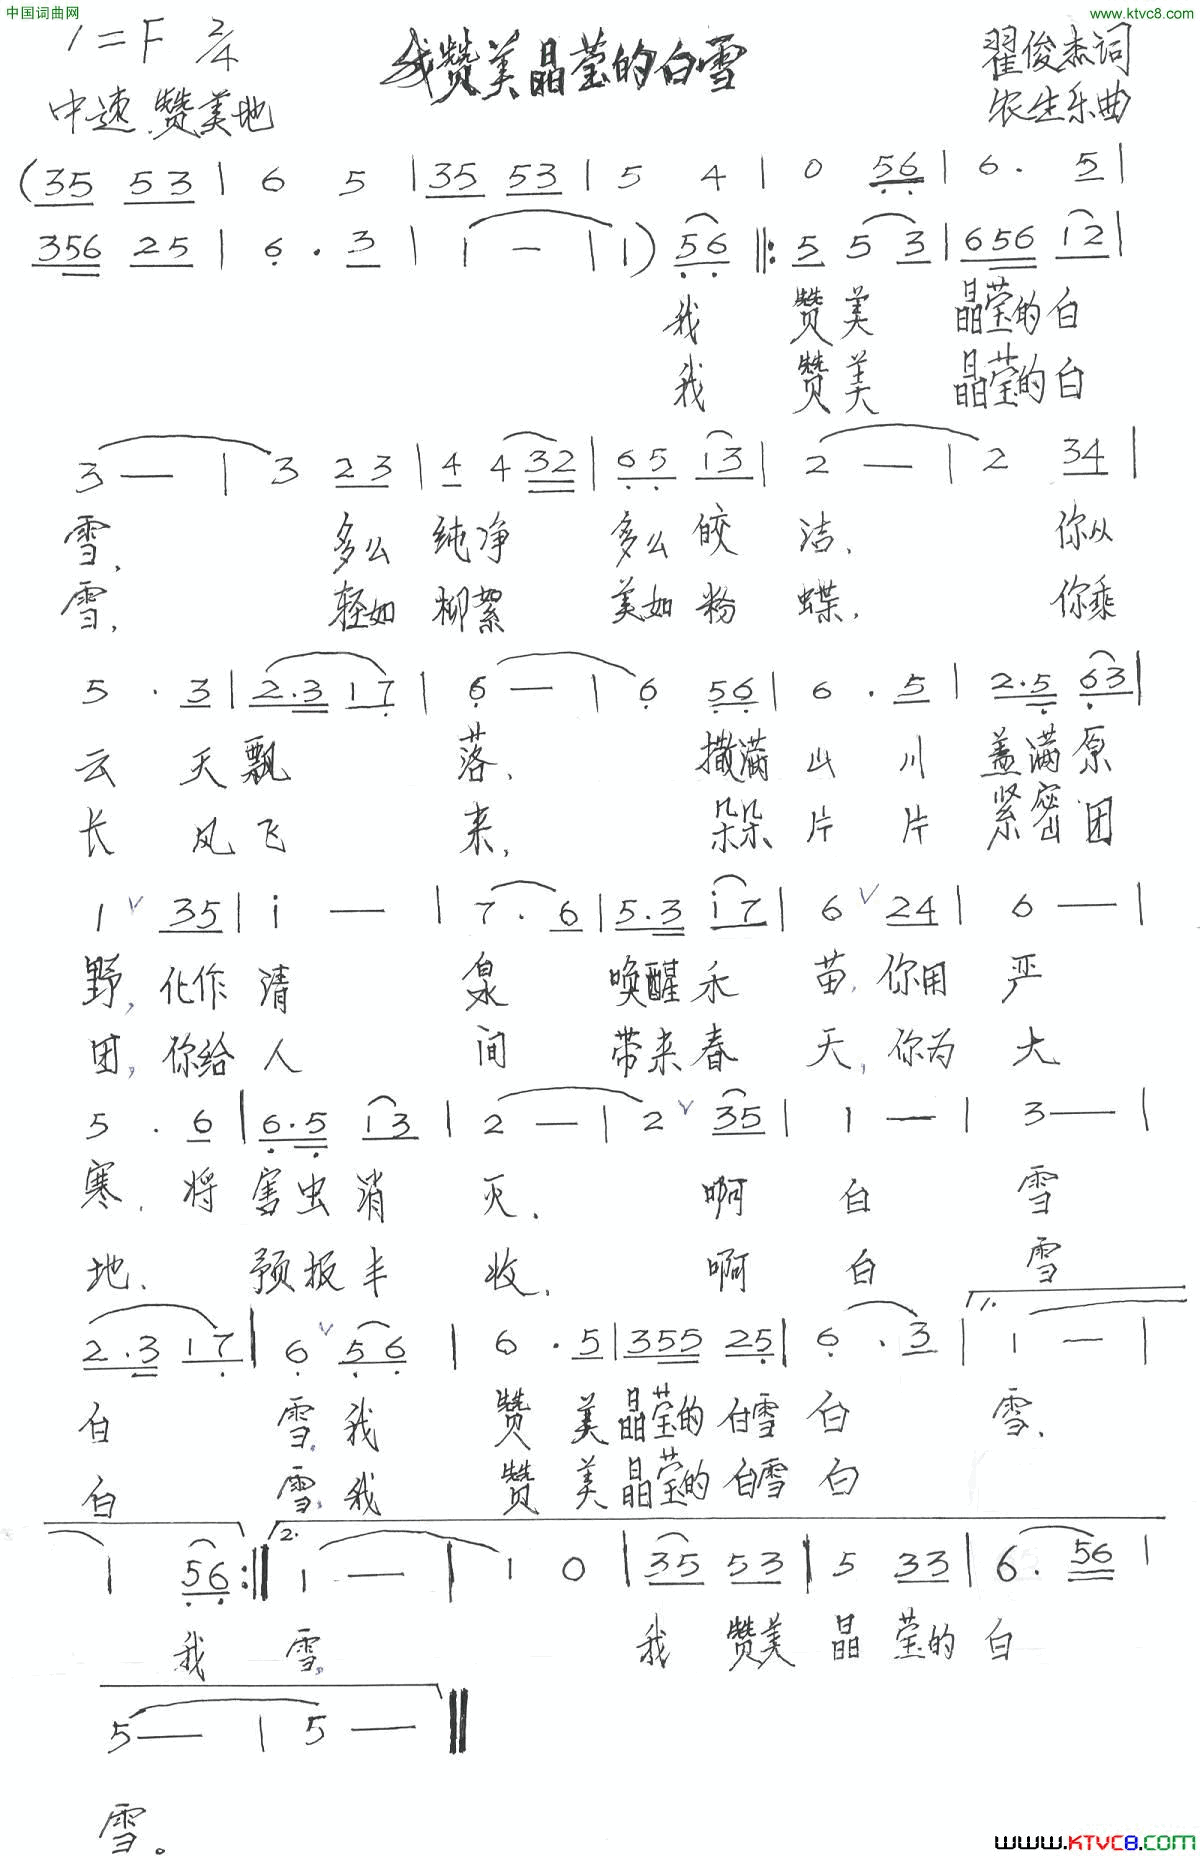 中国词曲网
www.ktvc8.com
1=F 2/4
我赞美晶莹的白雪
翟俊杰词
中速 赞美地
农生乐曲
(35 53 | 6 5 | 35 53 | 5 4 | 0 56 | 6. 5 |
356 25 | 6. 3 | 1 — | 1) 56 ‖: 5 5 3 | 656 12 |
我 赞美 晶莹的白
我 赞美 晶莹的白
3 — | 3 23 | 4 4 32 | 65 13 | 2 — | 2 34 |
雪, 多么 纯净 多么 皎 洁, 你从
雪, 轻如 柳絮 美如 粉 蝶, 你乘
5. 3 | 2.3 17 | 6 — | 6 56 | 6. 5 | 2.5 63 |
云 天 飘 落, 撒满 山 川 盖满 原
长 风 飞 来, 朵朵 片 片 紧密 团
1 ∨ 35 | i — | 7. 6 | 5.3 i7 | 6 ∨ 24 | 6 — |
野, 化作 清 泉 唤醒 禾 苗, 你用 严
团, 你给 人 间 带来 春 天, 你为 大
5. 6 | 6.5 13 | 2 — | 2 ∨ 35 | 1 — | 3 — |
寒, 将 害虫 消 灭, 啊 白 雪
地, 预报 丰 收, 啊 白 雪
2.3 17 | 6 ∨ 56 | 6. 5 | 355 25 | 6. 3 | 1. 1 — |
白 雪, 我 赞 美 晶莹的 白雪 白 雪,
白 雪, 我 赞 美 晶莹的 白雪 白
1 56 :‖ 2. 1 — | 1 0 | 35 53 | 5 33 | 6. 56 |
我 雪, 我 赞美 晶 莹的 白
5 — | 5 — ‖
雪。
www.KTVC8.com